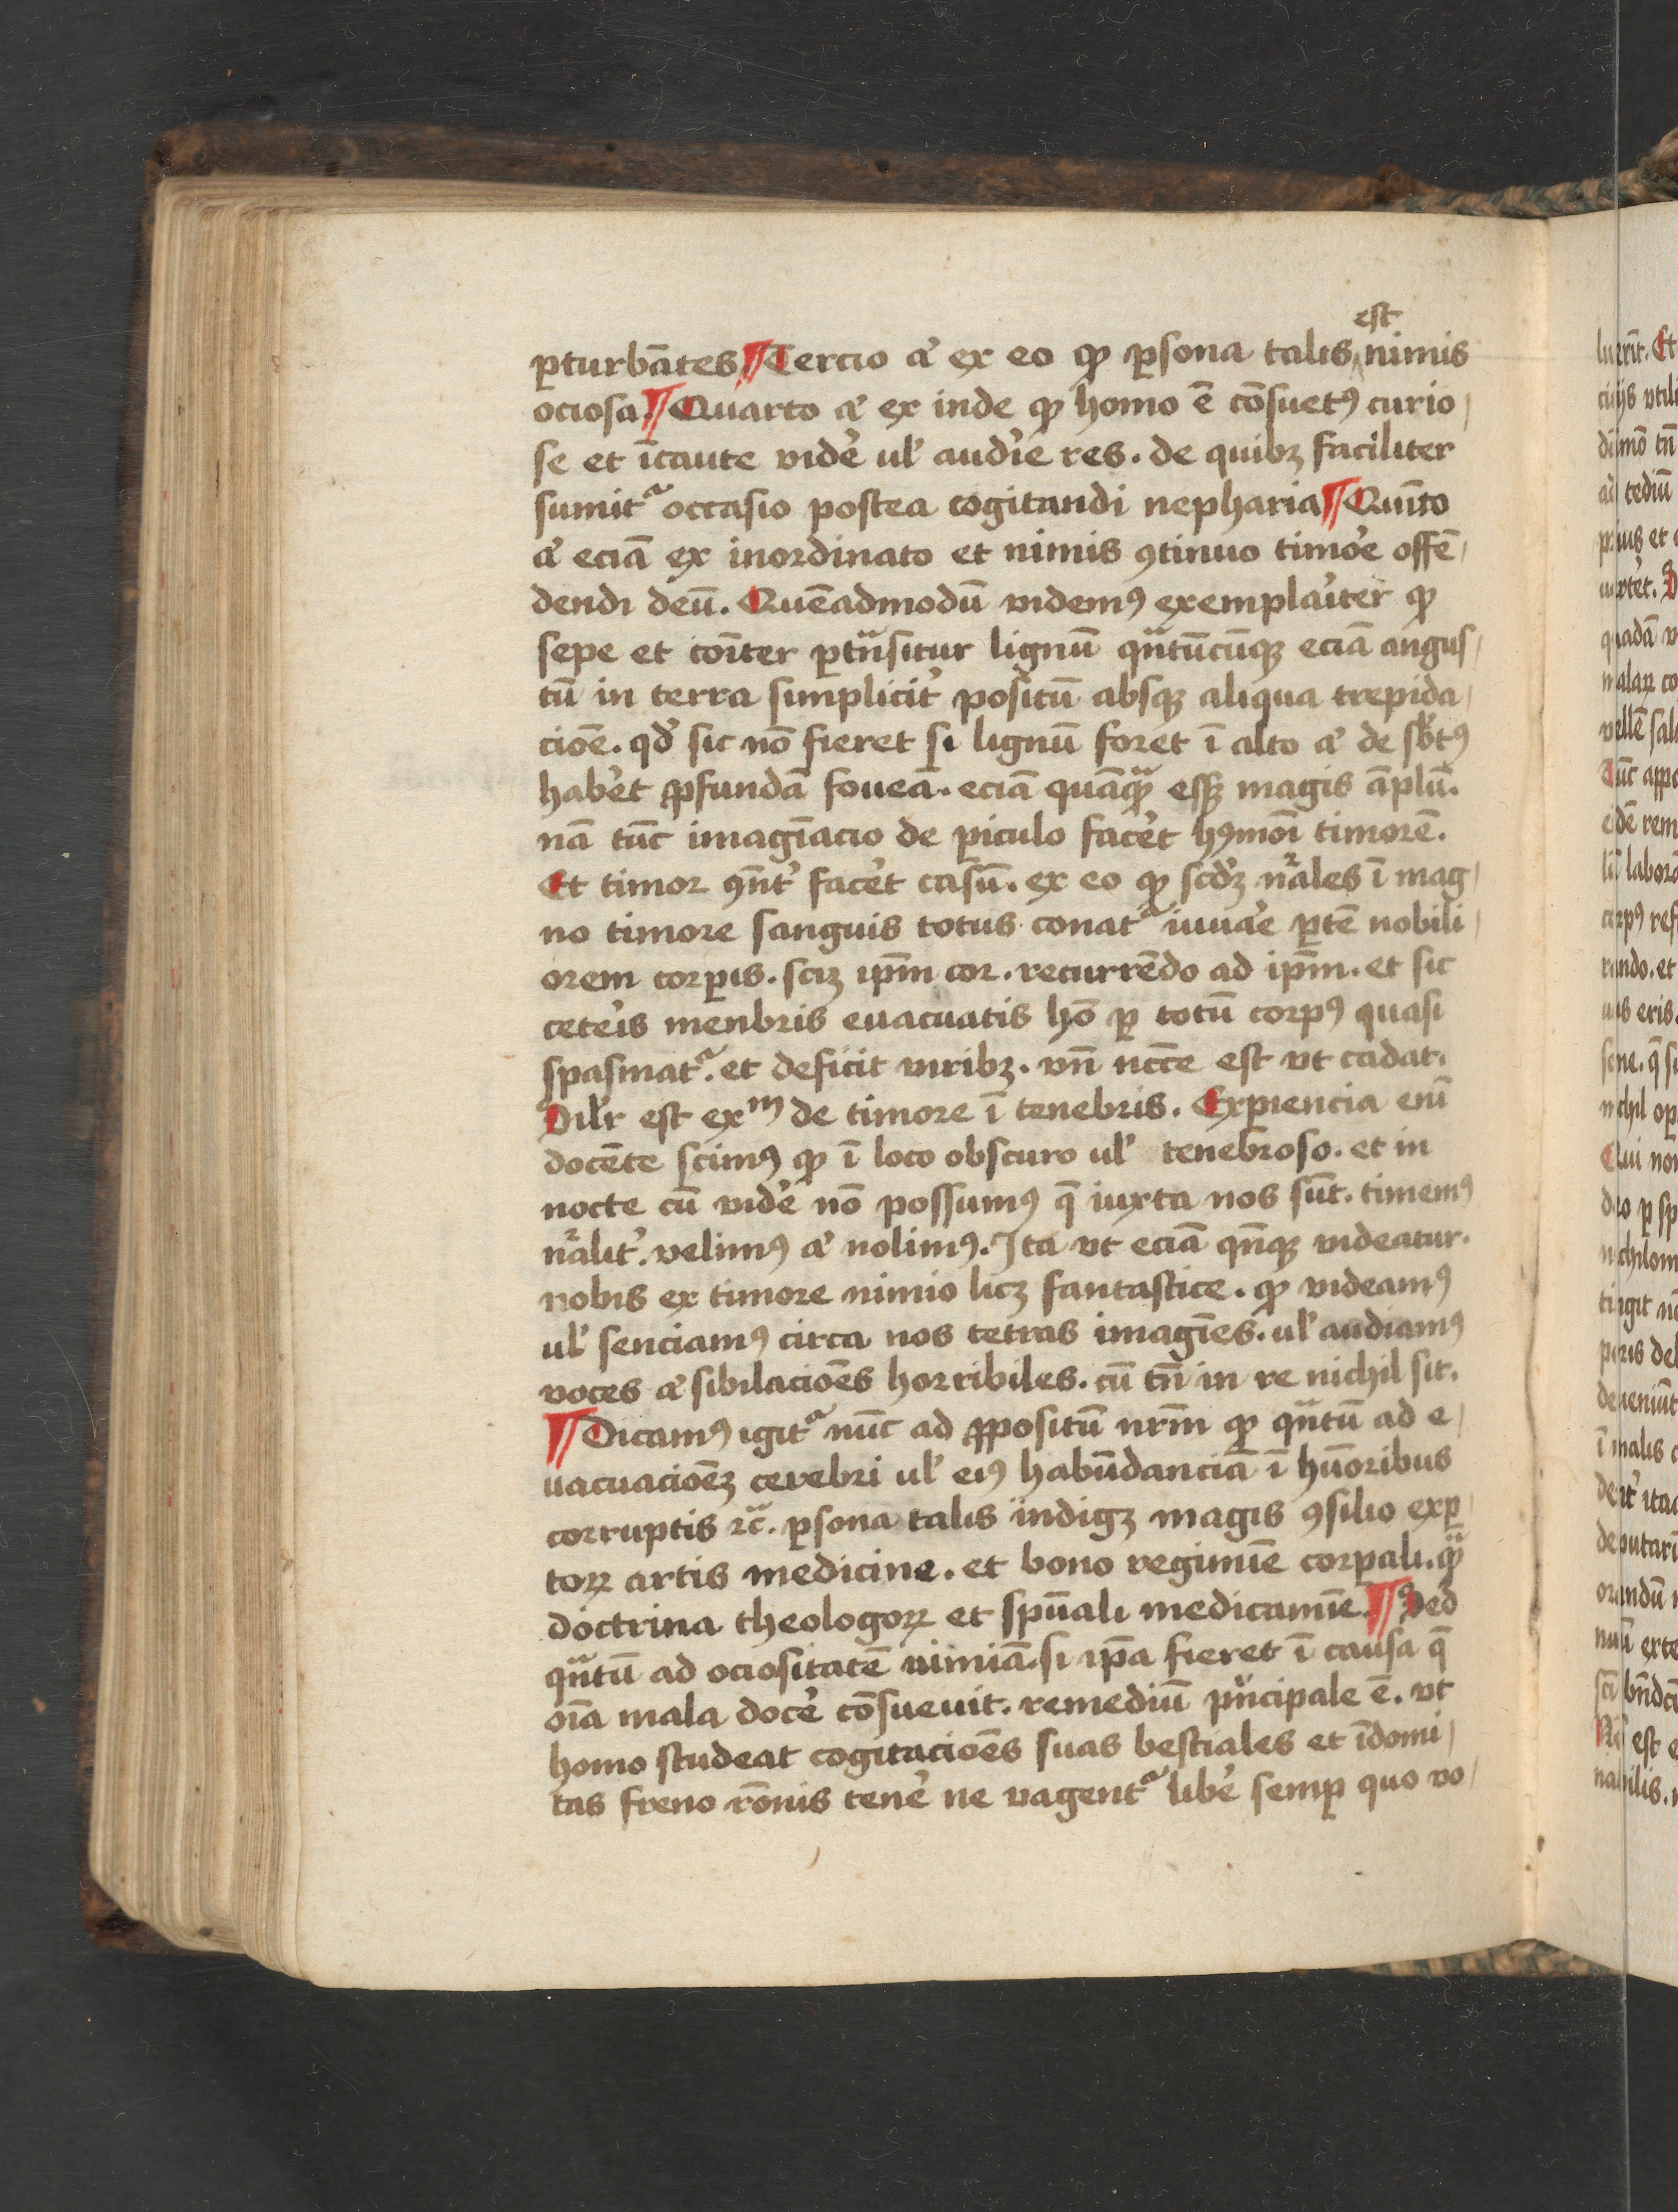 est
ꝑturbātes ¶ Tercio aͥ ex eo ꝙ ꝑsona talis nimis
ociosa. ¶ Quarto aͥ ex inde ꝙ homo ē cōsuetꝰ curio
se et īcaute vidē ul' audīe res. de quibꝫ faciliter
sumitᵃ occasio postea cogitandi nepharia ¶ Quīto
aͥ eciā ex inordinato et nimis ꝯtinuo timōe offē
dendi deū. Quēadmodū videmꝰ exemplaīter ꝙ
sepe et cōīter ꝑtᵃnsitur lignū qᵃntūcūqꝫ eciā angus
tū in terra simplicit' positū absqꝫ aliqua trepida
cioē. qd' sic nō fieret si lignū foret ī alto aͥ de sb'tꝰ
hab'et ꝓfundā foueā. eciā quāqᵃꝫ eēꝫ magis āplū.
nā tūc imagīacio de ꝑiculo fac'et hꝰmōi timorē.
Et timor ꝯn̄t' fac'et casū. ex eo ꝙ scd'ꝫ nᵃales ī mag
no timore sanguis totus conatᵃ iuuāe ꝑtē nobili
orem corꝑis. scꝫ ip̄m cor. recurrēdo ad ip̄m. et sic
cet'is menbris euacuatis hō ꝑ totū corpꝰ quasi
spasmatᵃ. et deficit viribꝫ. vn̄ nc̄cē est vt cadat.
Sil'r est exᵐ de timore ī tenebris. Exꝑiencia enī
docēte scimꝰ ꝙ ī loco obscuro ul' tenebroso. et in
nocte cū vidē nō possumꝰ q̄ iuxta nos sūt. timemꝰ
nᵃalit'. velimꝰ aͥ nolimꝰ. Ita vt eciā qn̄qꝫ videatur.
nobis ex timore nimio licꝫ fantastice. ꝙ videamꝰ
ul' senciamꝰ circa nos tetras imagīes. ul' audiamꝰ
voces aͥ sibilacioēs horribiles. cū tn̄ in re nichil sit.
¶ Dicamꝰ igitᵃ nūc ad ꝓpositū nr̄m ꝙ qᵃntū ad e
uacuacioēꝫ cerebri ul' eiꝰ habūdanciā ī hūoribus
corruptis ⁊c̄. ꝑsona talis indigꝫ magis ꝯsilio exꝑ
toꝝ artis medicine. et bono regimīe corꝑali. qᵃꝫ
doctrina theologoꝝ et spūali medicamīe. ¶ Sed
qᵃntū ad ociositatē nimiā. si ip̄a fieret ī causa q̄
oīa mala docē cōsueuit. remediū pͥncipale ē. vt
homo studeat cogitacioēs suas bestiales et īdomi
tas freno rōnis tenē ne vagentᵃ libē semꝑ quo vo